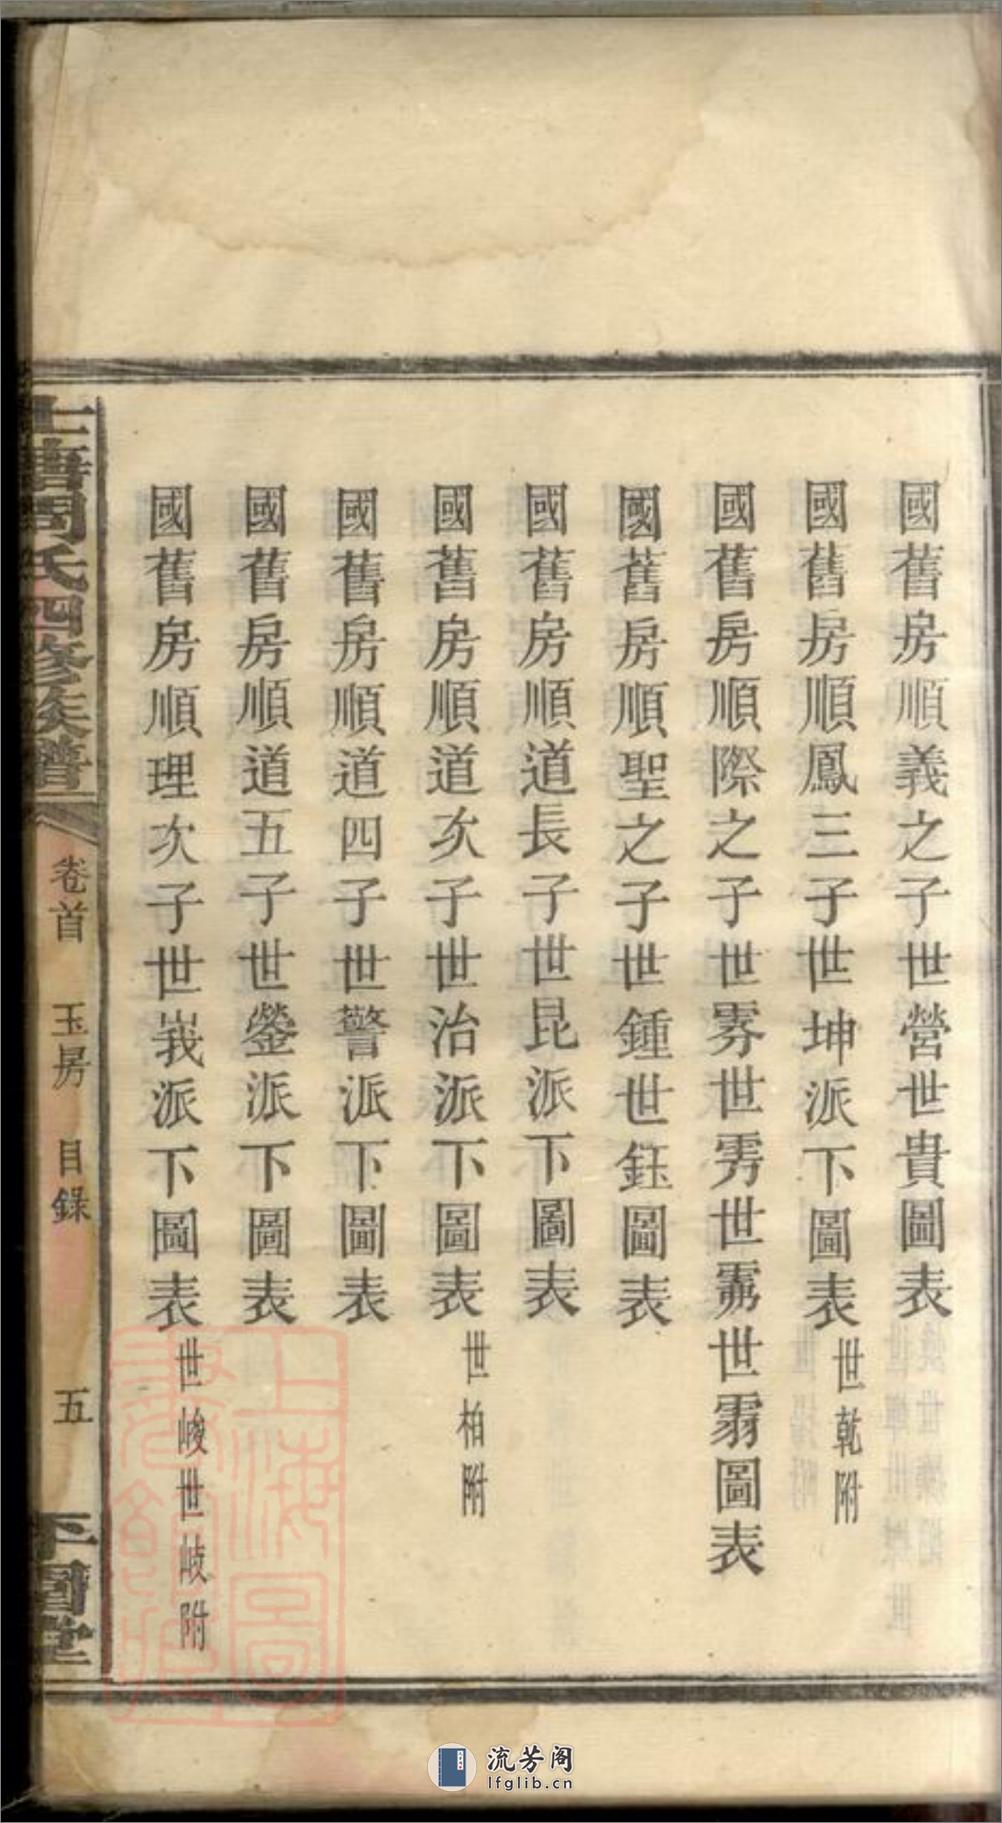 國舊房順義之子世營世貴圖表
國舊房順鳳三子世坤派下圖表世乾附
國舊房順際之子世雺世雱世霛世雵圖表
國舊房順聖之子世鍾世鈺圖表
國舊房順道長子世昆派下圖表
國舊房順道次子世治派下圖表世柏附
國舊房順道四子世警派下圖表
國舊房順道五子世鎣派下圖表
國舊房順理次子世峩派下圖表世峻世岐附
上塘周氏四修族譜
卷首 玉房 目錄 五
上海圖書館藏
流芳阁
lfglib.cn